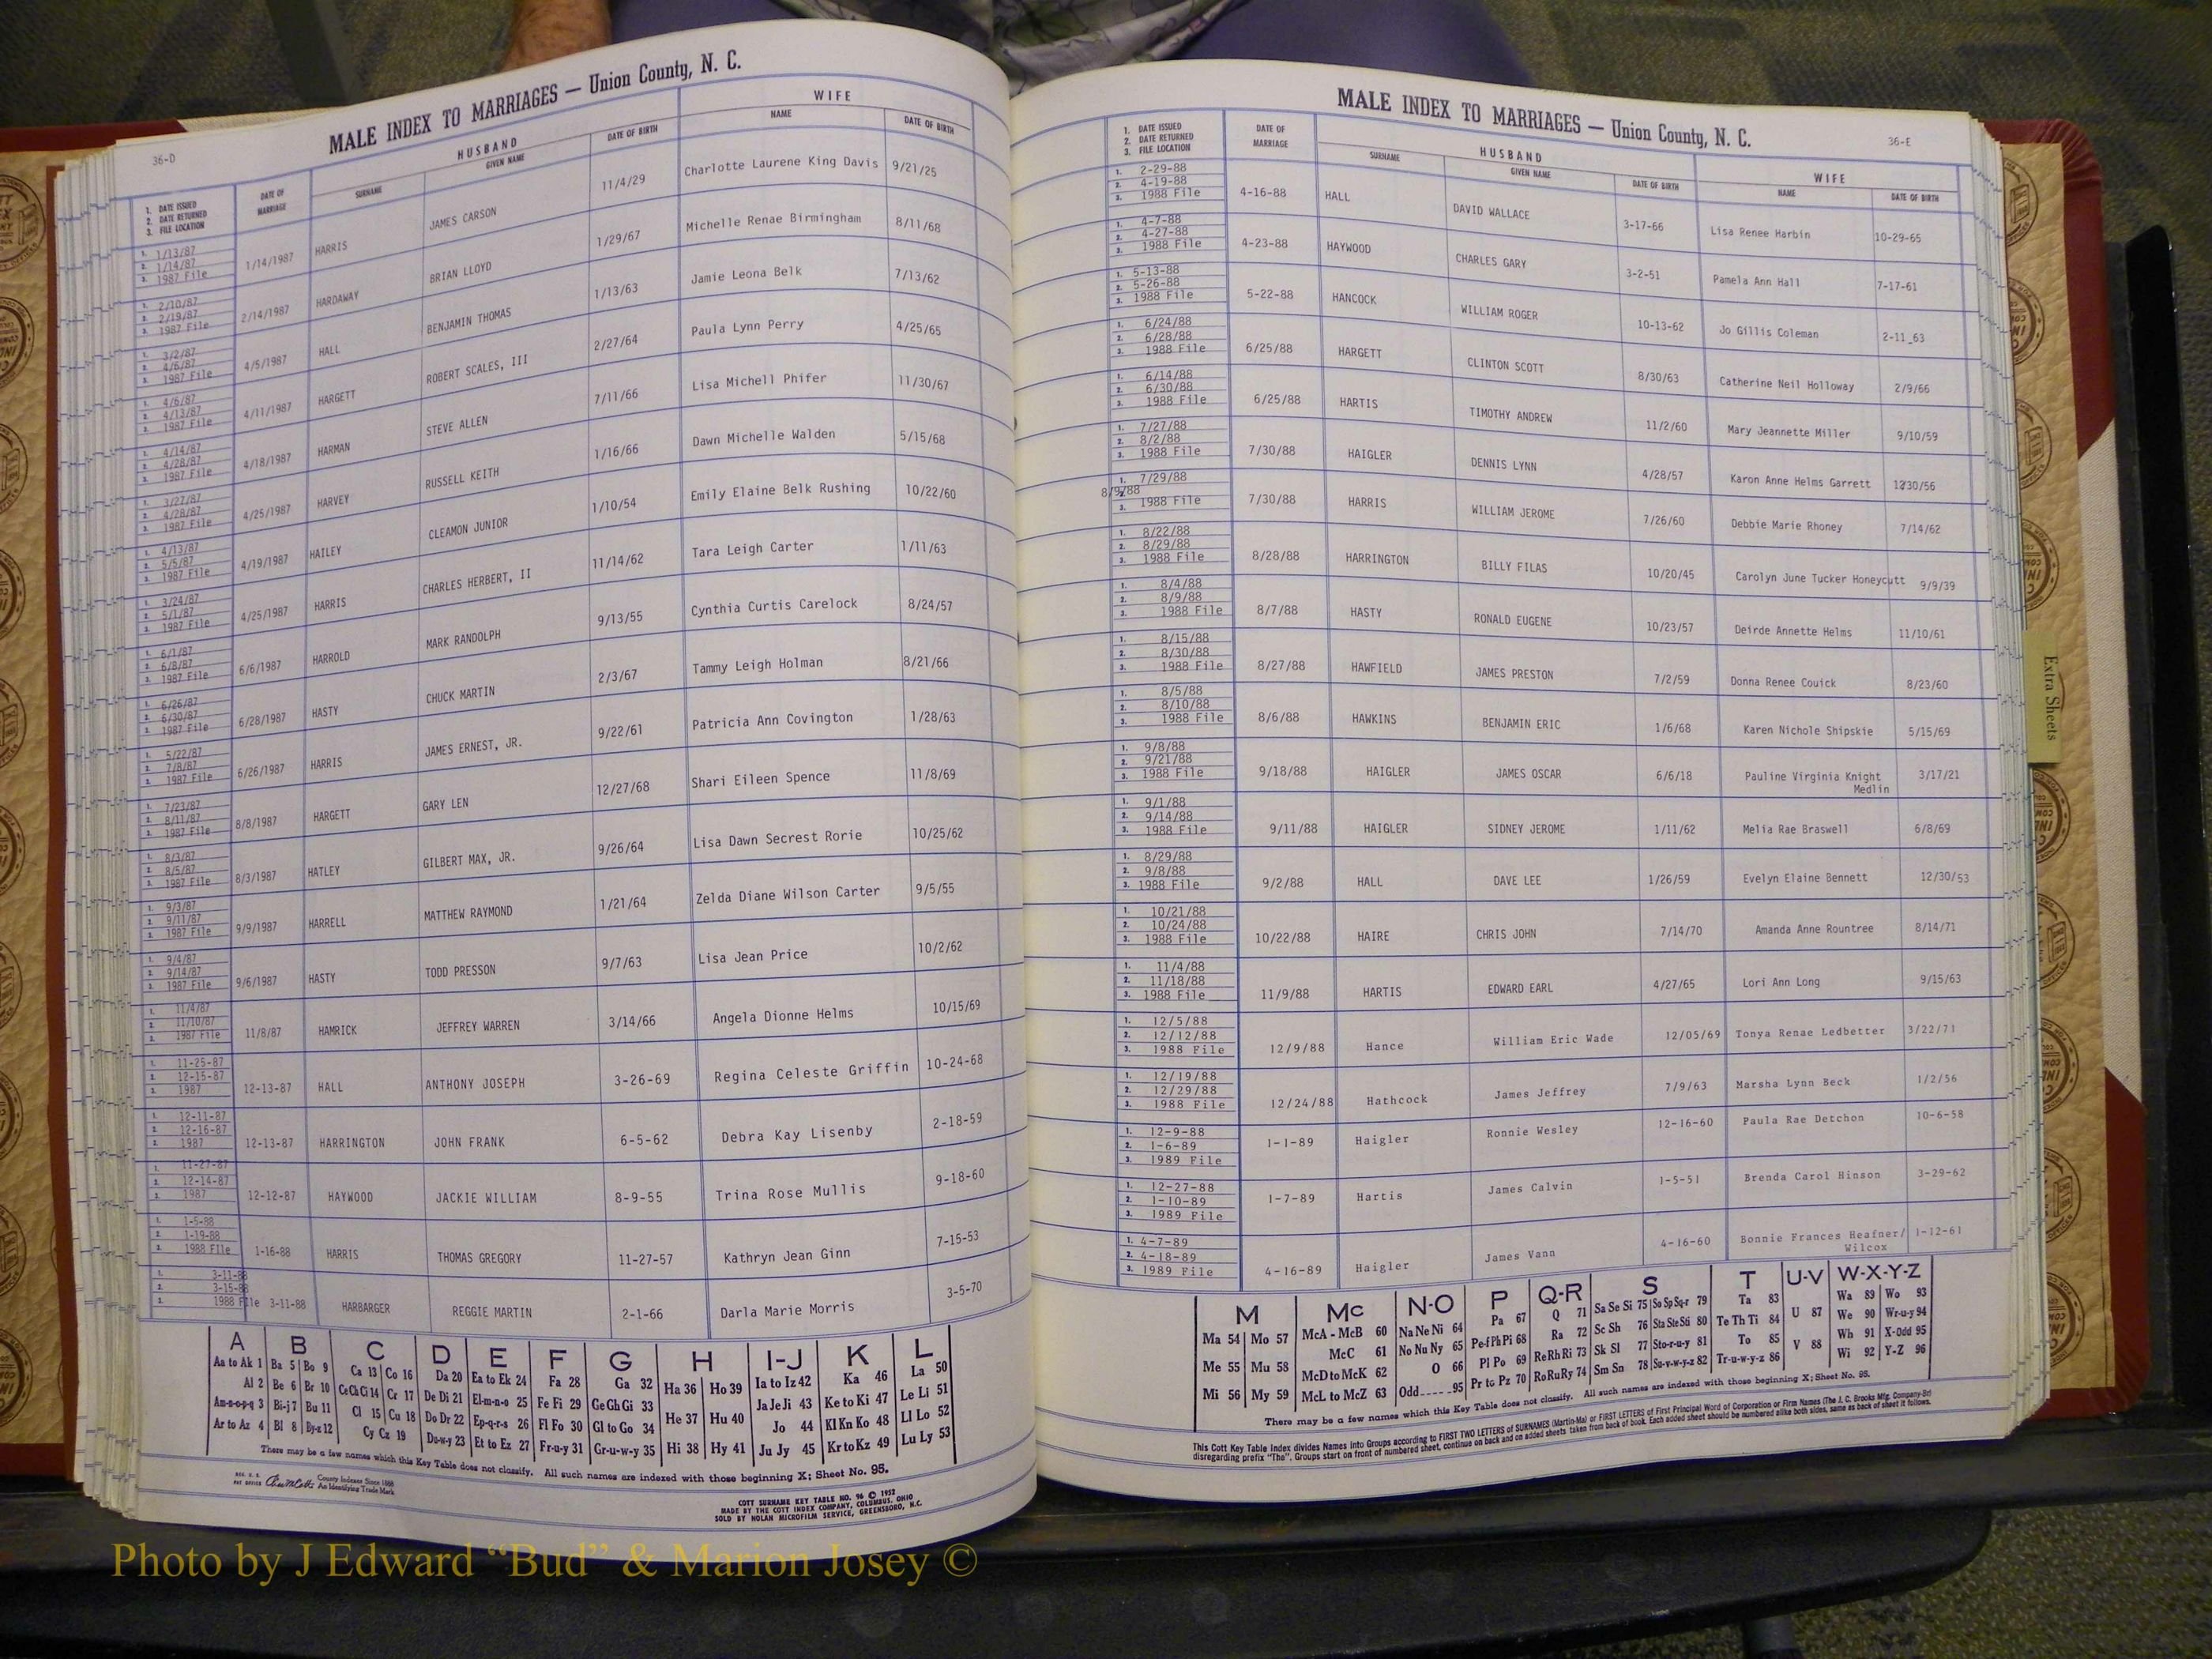 36-D
MALE INDEX TO MARRIAGES — Union County, N. C.
1. DATE ISSUED
2. DATE RETURNED
3. FILE LOCATION
DATE OF MARRIAGE
HUSBAND
SURNAME
GIVEN NAME
DATE OF BIRTH
WIFE
NAME
DATE OF BIRTH
1. 1/13/87
2. 1/14/87
3. 1987 File
1/14/1987 HARRIS JAMES CARSON 11/4/29 Charlotte Laurene King Davis 9/21/25
1. 2/10/87
2. 2/19/87
3. 1987 File
2/14/1987 HARDAWAY BRIAN LLOYD 1/29/67 Michelle Renae Birmingham 8/11/68
1. 3/2/87
2. 4/6/87
3. 1987 File
4/5/1987 HALL BENJAMIN THOMAS 1/13/63 Jamie Leona Belk 7/13/62
1. 4/6/87
2. 4/13/87
3. 1987 File
4/11/1987 HARGETT ROBERT SCALES, III 2/27/64 Paula Lynn Perry 4/25/65
1. 4/14/87
2. 4/28/87
3. 1987 File
4/18/1987 HARMAN STEVE ALLEN 7/11/66 Lisa Michell Phifer 11/30/67
1. 3/27/87
2. 4/28/87
3. 1987 File
4/25/1987 HARVEY RUSSELL KEITH 1/16/66 Dawn Michelle Walden 5/15/68
1. 4/13/87
2. 5/5/87
3. 1987 File
4/19/1987 HAILEY CLEAMON JUNIOR 1/10/54 Emily Elaine Belk Rushing 10/22/60
1. 3/24/87
2. 5/1/87
3. 1987 File
4/25/1987 HARRIS CHARLES HERBERT, II 11/14/62 Tara Leigh Carter 1/11/63
1. 6/1/87
2. 6/8/87
3. 1987 File
6/6/1987 HARROLD MARK RANDOLPH 9/13/55 Cynthia Curtis Carelock 8/24/57
1. 6/26/87
2. 6/30/87
3. 1987 File
6/28/1987 HASTY CHUCK MARTIN 2/3/67 Tammy Leigh Holman 8/21/66
1. 5/22/87
2. 7/8/87
3. 1987 File
6/26/1987 HARRIS JAMES ERNEST, JR. 9/22/61 Patricia Ann Covington 1/28/63
1. 7/23/87
2. 8/11/87
3. 1987 File
8/8/1987 HARGETT GARY LEN 12/27/68 Shari Eileen Spence 11/8/69
1. 8/3/87
2. 8/5/87
3. 1987 File
8/3/1987 HATLEY GILBERT MAX, JR. 9/26/64 Lisa Dawn Secrest Rorie 10/25/62
1. 9/3/87
2. 9/11/87
3. 1987 File
9/9/1987 HARRELL MATTHEW RAYMOND 1/21/64 Zelda Diane Wilson Carter 9/5/55
1. 9/4/87
2. 9/14/87
3. 1987 File
9/6/1987 HASTY TODD PRESSON 9/7/63 Lisa Jean Price 10/2/62
1. 11/4/87
2. 11/10/87
3. 1987 File
11/8/87 HAMRICK JEFFREY WARREN 3/14/66 Angela Dionne Helms 10/15/69
1. 11-25-87
2. 12-15-87
3. 1987
12-13-87 HALL ANTHONY JOSEPH 3-26-69 Regina Celeste Griffin 10-24-68
1. 12-11-87
2. 12-16-87
3. 1987
12-13-87 HARRINGTON JOHN FRANK 6-5-62 Debra Kay Lisenby 2-18-59
1. 11-27-87
2. 12-14-87
3. 1987
12-12-87 HAYWOOD JACKIE WILLIAM 8-9-55 Trina Rose Mullis 9-18-60
1. 1-5-88
2. 1-19-88
3. 1988 File
1-16-88 HARRIS THOMAS GREGORY 11-27-57 Kathryn Jean Ginn 7-15-53
1. 3-11-88
2. 3-15-88
3. 1988 File
3-11-88 HARBARGER REGGIE MARTIN 2-1-66 Darla Marie Morris 3-5-70
A B C D E F G H I-J K L
Aa to Ak 1 Ba 5 Bo 9 Ca 13 Co 16 Da 20 Ea to Ek 24 Fa 28 Ga 32 Ha 36 Ho 39 Ia to Iz 42 Ka 46 La 50
Al 2 Be 6 Br 10 Ce Ch Ci 14 Cr 17 De Di 21 El-m-n-o 25 Fe Fi 29 Ge Gh Gi 33 Ja Je Ji 43 Ke to Ki 47 Le Li 51
Am-n-o-p-q 3 Bi-j 7 Bu 11 Cl 15 Cu 18 Do Dr 22 Ep-q-r-s 26 Fl Fo 30 Gl to Go 34 He 37 Hu 40 Jo 44 Kl Kn Ko 48 Ll Lo 52
Ar to Az 4 Bl 8 By-z 12 Cy Cz 19 Du-w-y 23 Et to Ez 27 Fr-u-y 31 Gr-u-w-y 35 Hi 38 Hy 41 Ju Jy 45 Kr to Kz 49 Lu Ly 53
There may be a few names which this Key Table does not classify. All such names are indexed with those beginning X; Sheet No. 95.
County Indexes Since 1888
An Identifying Trade Mark
COTT SURNAME KEY TABLE NO. 96 © 1952
MADE BY THE COTT INDEX COMPANY, COLUMBUS, OHIO
SOLD BY NOLAN MICROFILM SERVICE, GREENSBORO, N.C.
MALE INDEX TO MARRIAGES — Union County, N. C.
36-E
1. DATE ISSUED
2. DATE RETURNED
3. FILE LOCATION
DATE OF MARRIAGE
HUSBAND
SURNAME
GIVEN NAME
DATE OF BIRTH
WIFE
NAME
DATE OF BIRTH
1. 2-29-88
2. 4-19-88
3. 1988 File
4-16-88 HALL DAVID WALLACE 3-17-66 Lisa Renee Harbin 10-29-65
1. 4-7-88
2. 4-27-88
3. 1988 File
4-23-88 HAYWOOD CHARLES GARY 3-2-51 Pamela Ann Hall 7-17-61
1. 5-13-88
2. 5-26-88
3. 1988 File
5-22-88 HANCOCK WILLIAM ROGER 10-13-62 Jo Gillis Coleman 2-11_63
1. 6/24/88
2. 6/28/88
3. 1988 File
6/25/88 HARGETT CLINTON SCOTT 8/30/63 Catherine Neil Holloway 2/9/66
1. 6/14/88
2. 6/30/88
3. 1988 File
6/25/88 HARTIS TIMOTHY ANDREW 11/2/60 Mary Jeannette Miller 9/10/59
1. 7/27/88
2. 8/2/88
3. 1988 File
7/30/88 HAIGLER DENNIS LYNN 4/28/57 Karon Anne Helms Garrett 12/30/56
1. 7/29/88
2. 8/9/88
3. 1988 File
7/30/88 HARRIS WILLIAM JEROME 7/26/60 Debbie Marie Rhoney 7/14/62
1. 8/22/88
2. 8/29/88
3. 1988 File
8/28/88 HARRINGTON BILLY FILAS 10/20/45 Carolyn June Tucker Honeycutt 9/9/39
1. 8/4/88
2. 8/9/88
3. 1988 File
8/7/88 HASTY RONALD EUGENE 10/23/57 Deirde Annette Helms 11/10/61
1. 8/15/88
2. 8/30/88
3. 1988 File
8/27/88 HAWFIELD JAMES PRESTON 7/2/59 Donna Renee Couick 8/23/60
1. 8/5/88
2. 8/10/88
3. 1988 File
8/6/88 HAWKINS BENJAMIN ERIC 1/6/68 Karen Nichole Shipskie 5/15/69
1. 9/8/88
2. 9/21/88
3. 1988 File
9/18/88 HAIGLER JAMES OSCAR 6/6/18 Pauline Virginia Knight 3/17/21
Medlin
1. 9/1/88
2. 9/14/88
3. 1988 File
9/11/88 HAIGLER SIDNEY JEROME 1/11/62 Melia Rae Braswell 6/8/69
1. 8/29/88
2. 9/8/88
3. 1988 File
9/2/88 HALL DAVE LEE 1/26/59 Evelyn Elaine Bennett 12/30/53
1. 10/21/88
2. 10/24/88
3. 1988 File
10/22/88 HAIRE CHRIS JOHN 7/14/70 Amanda Anne Rountree 8/14/71
1. 11/4/88
2. 11/18/88
3. 1988 File
11/9/88 HARTIS EDWARD EARL 4/27/65 Lori Ann Long 9/15/63
1. 12/5/88
2. 12/12/88
3. 1988 File
12/9/88 Hance William Eric Wade 12/05/69 Tonya Renae Ledbetter 3/22/71
1. 12/19/88
2. 12/29/88
3. 1988 File
12/24/88 Hathcock James Jeffrey 7/9/63 Marsha Lynn Beck 1/2/56
1. 12-9-88
2. 1-6-89
3. 1989 File
1-1-89 Haigler Ronnie Wesley 12-16-60 Paula Rae Detchon 10-6-58
1. 12-27-88
2. 1-10-89
3. 1989 File
1-7-89 Hartis James Calvin 1-5-51 Brenda Carol Hinson 3-29-62
1. 4-7-89
2. 4-18-89
3. 1989 File
4-16-89 Haigler James Vann 4-16-60 Bonnie Frances Heafner/ 1-12-61
Wilcox
M Mc N-O P Q-R S T U-V W-X-Y-Z
Ma 54 Mo 57 McA - McB 60 Na Ne Ni 64 Pa 67 Q 71 Sa Se Si 75 So Sp Sq-r 79 Ta 83 U 87 Wa 89 Wo 93
Me 55 Mu 58 McC 61 No Nu Ny 65 Pe-f Ph Pi 68 Ra 72 Sc Sh 76 Sta Ste Sti 80 Te Th Ti 84 We 90 Wr-u-y 94
McD to McK 62 O 66 Pl Po 69 Re Rh Ri 73 Sk Sl 77 Sto-r-u-y 81 To 85 V 88 Wh 91 X-Odd 95
Mi 56 My 59 McL to McZ 63 Odd 95 Pr to Pz 70 Ro Ru Ry 74 Sm Sn 78 Su-v-w-y-z 82 Tr-u-w-y-z 86 Wi 92 Y-Z 96
There may be a few names which this Key Table does not classify. All such names are indexed with those beginning X; Sheet No. 95.
This Cott Key Table Index divides Names into Groups according to FIRST TWO LETTERS of SURNAMES (Martin-Ma) or FIRST LETTERS of First Principal Word of Corporation or Firm Names (The J. C. Brooks Mfg. Company-Br)
disregarding prefix "The". Groups start on front of numbered sheet, continue on back and on added sheets taken from back of book. Each added sheet should be numbered alike both sides, same as back of sheet it follows.
Extra Sheets
Photo by J Edward “Bud” & Marion Josey ©